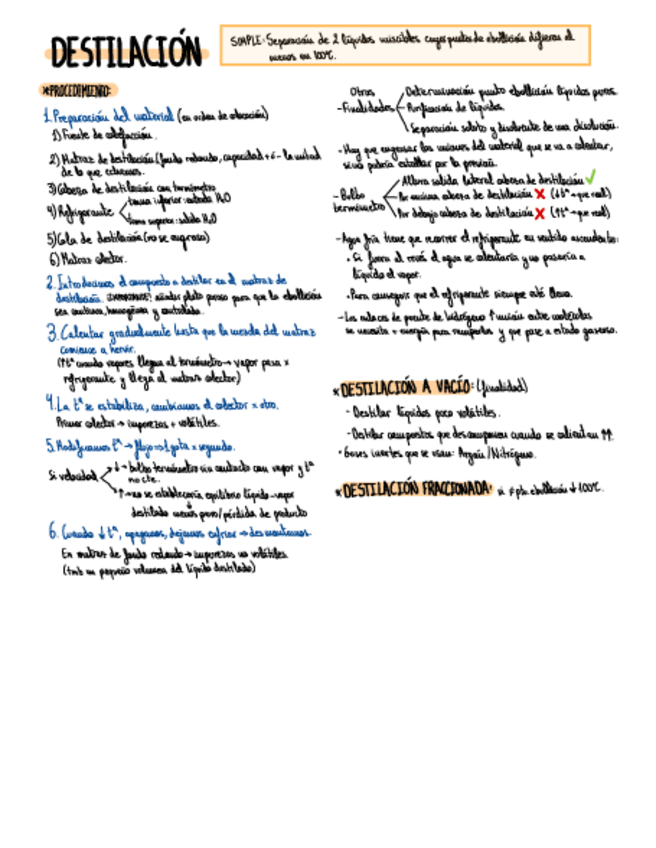 DESTILACIÓN
SIMPLE: Separación de 2 líquidos miscibles cuyos puntos de ebullición difieren al
menos en 100ºC.
*PROCEDIMIENTO:
1. Preparación del material (en orden de colocación)
1) Fuente de calefacción.
2) Matraz de destilación (fondo redondo, capacidad +ó- la mitad
de lo que echemos.
3) Cabeza de destilación con termómetro
4) Refrigerante
toma inferior: entrada H2O
toma superior: salida H2O
5) Cola de destilación (no se engrasa)
6) Matraz colector.
2. Introducimos el compuesto a destilar en el matraz de
destilación. IMPORTANTE: añadir plato poroso para que la ebullición
sea continua, homogénea y controlada.
3. Calentar gradualmente hasta que la mezcla del matraz
comience a hervir.
(↑tª cuando vapores llegan al termómetro → vapor pasa x
refrigerante y llega al matraz colector)
4. La tª se estabiliza, cambiamos el colector x otro.
Primer colector → impurezas + volátiles.
5. Modificamos tª → flujo = 1 gota x segundo.
Si velocidad
↓ → bulbo termómetro sin contacto con vapor y tª
no cte.
↑ → no se establecería equilibrio líquido-vapor
destilado menos puro/pérdida de producto
6. Cuando ↓ tª, apagamos, dejamos enfriar → desmontamos.
En matraz de fondo redondo → impurezas no volátiles
(tmb un pequeño volumen del líquido destilado)
Otras
- Finalidades
Determinación punto ebullición líquidos puros.
Purificación de líquidos.
Separación soluto y disolvente de una disolución.
- Hay que engrasar las uniones del material que se va a calentar,
si no podría estallar por la presión.
- Bulbo
termómetro
Altura salida lateral cabeza de destilación ✓
Por encima cabeza de destilación X (↓tª → que real)
Por debajo cabeza de destilación X (↑tª → que real)
- Agua fría tiene que recorrer el refrigerante en sentido ascendente:
• Si fuera al revés el agua se calentaría y no pasaría a
líquido el vapor.
• Para conseguir que el refrigerante siempre esté lleno.
- Los enlaces de puente de hidrógeno ↑ unión entre moléculas
se necesita + energía para romperlos y que pase a estado gaseoso.
*DESTILACIÓN A VACÍO: (finalidad)
- Destilar líquidos poco volátiles.
- Destilar compuestos que descomponen cuando se calientan ↑↑.
• Gases inertes que se usan: Argón/Nitrógeno.
*DESTILACIÓN FRACCIONADA: si ≠ pto. ebullición ↓ 100ºC.